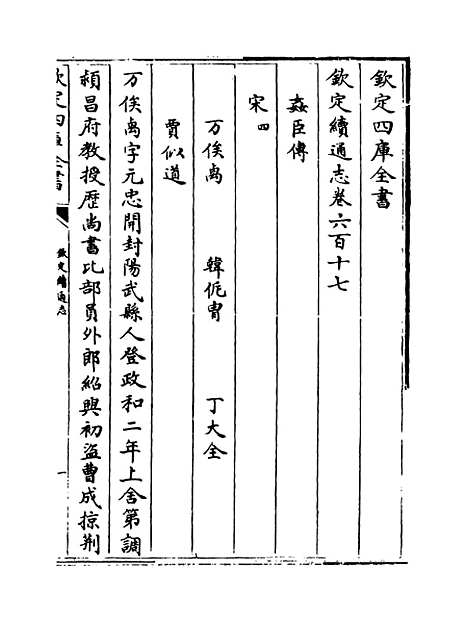 欽定四庫全書
欽定續通志卷六百十七
姦臣傳
宋四
万俟卨 韓侂胄 丁大全
賈似道
万俟卨字元忠開封陽武縣人登政和二年上舍第調
潁昌府教授歴尚書比部員外郎紹興初盜曹成掠荆
欽定四庫全書
欽定續通志
一